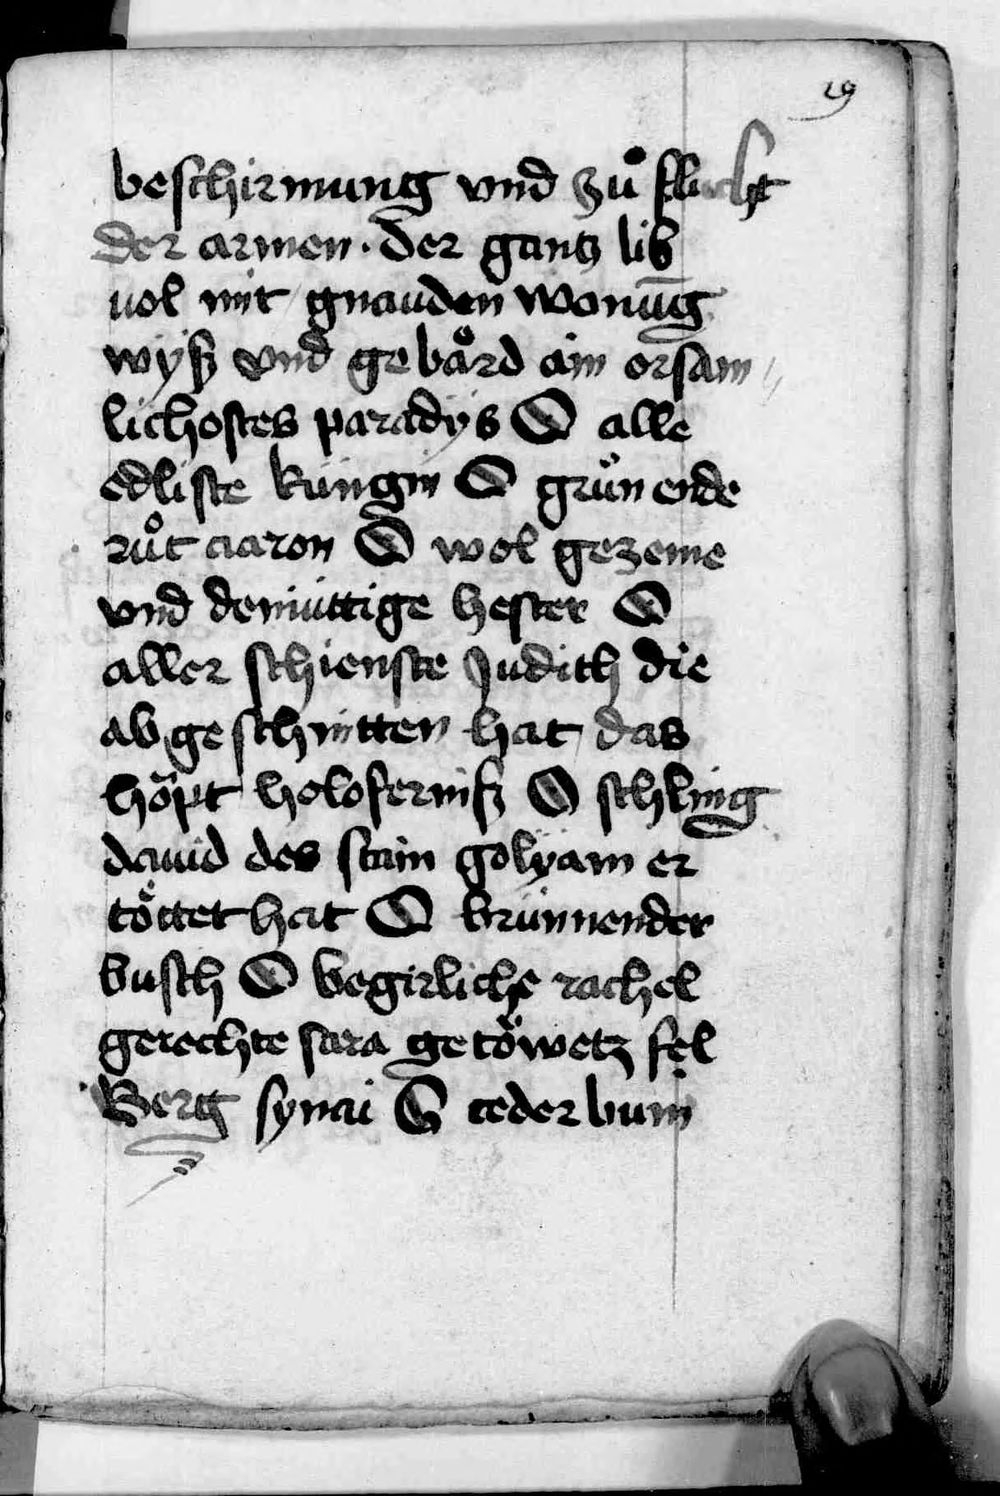 19
beschirmung vnd zuͦ flucht
der armen · der gantz lib
uol mit gnauden wonūg
wyß vnd gebaͤrd ain orsam
lichostes paradÿs O alle
edliste kúngin O gruͤnende
ruͦt aaron O wol gezeme
vnd demúttige hester O
aller schienste Judith die
ab geschnitten hat das
hoͤpt holoferniß O schling
dauid des stain golyam er
toͤttet hat O brúnnender
busch O begirliche rachel
gerechte sara getoͤwetz fel
Berg synai O ceder bum